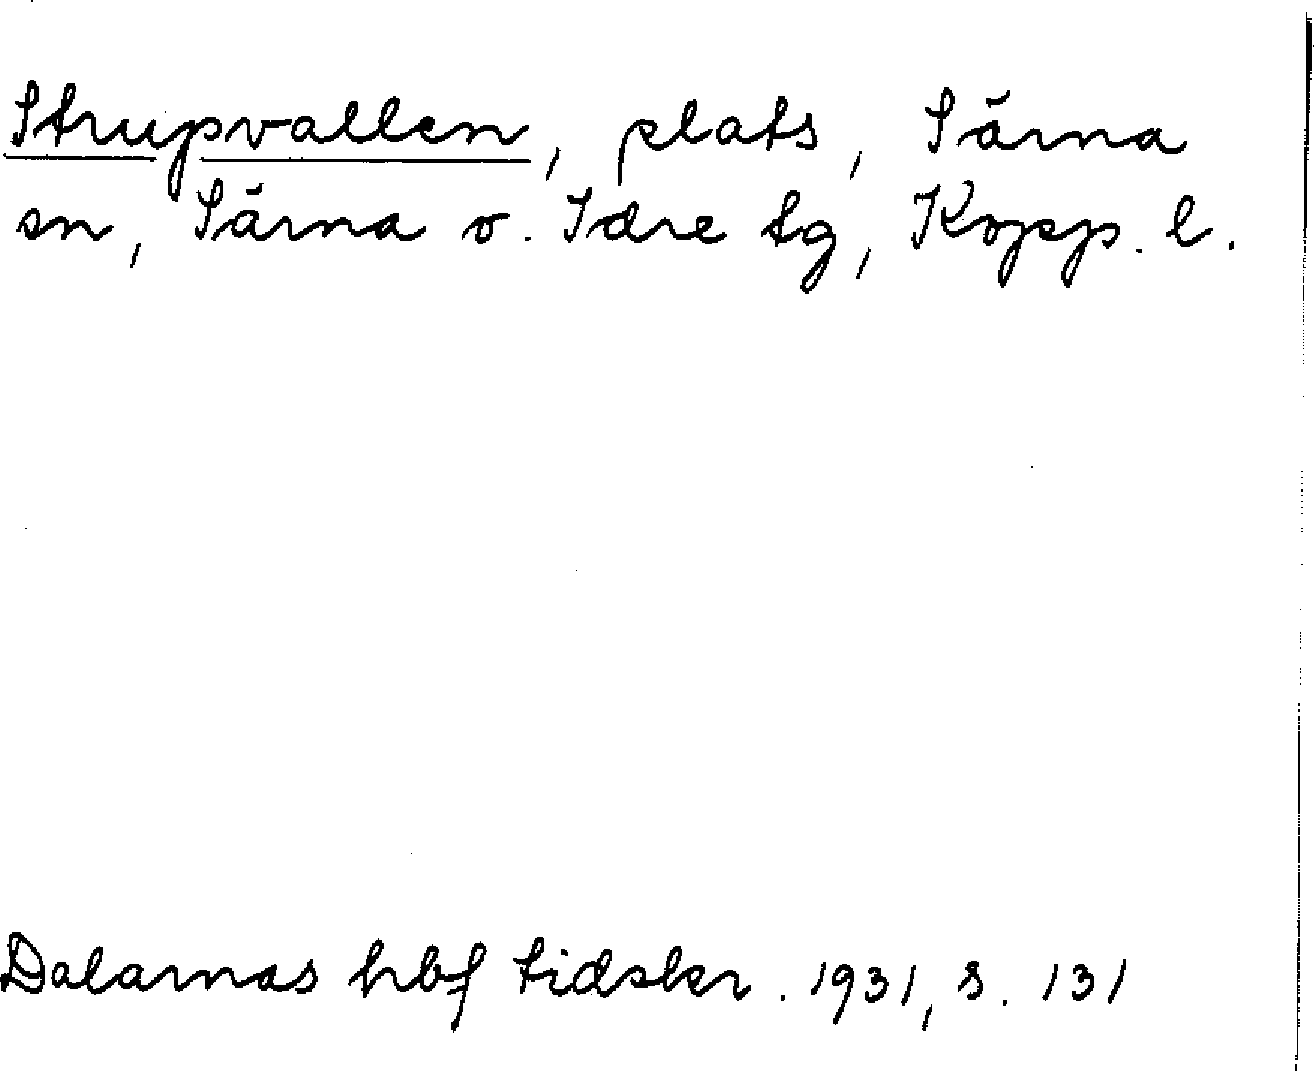 Strupvallen, plats, Särna
sn, Särna o. Idre tg, Kopp. l.
Dalarnas hbf tidskr. 1931, s. 131